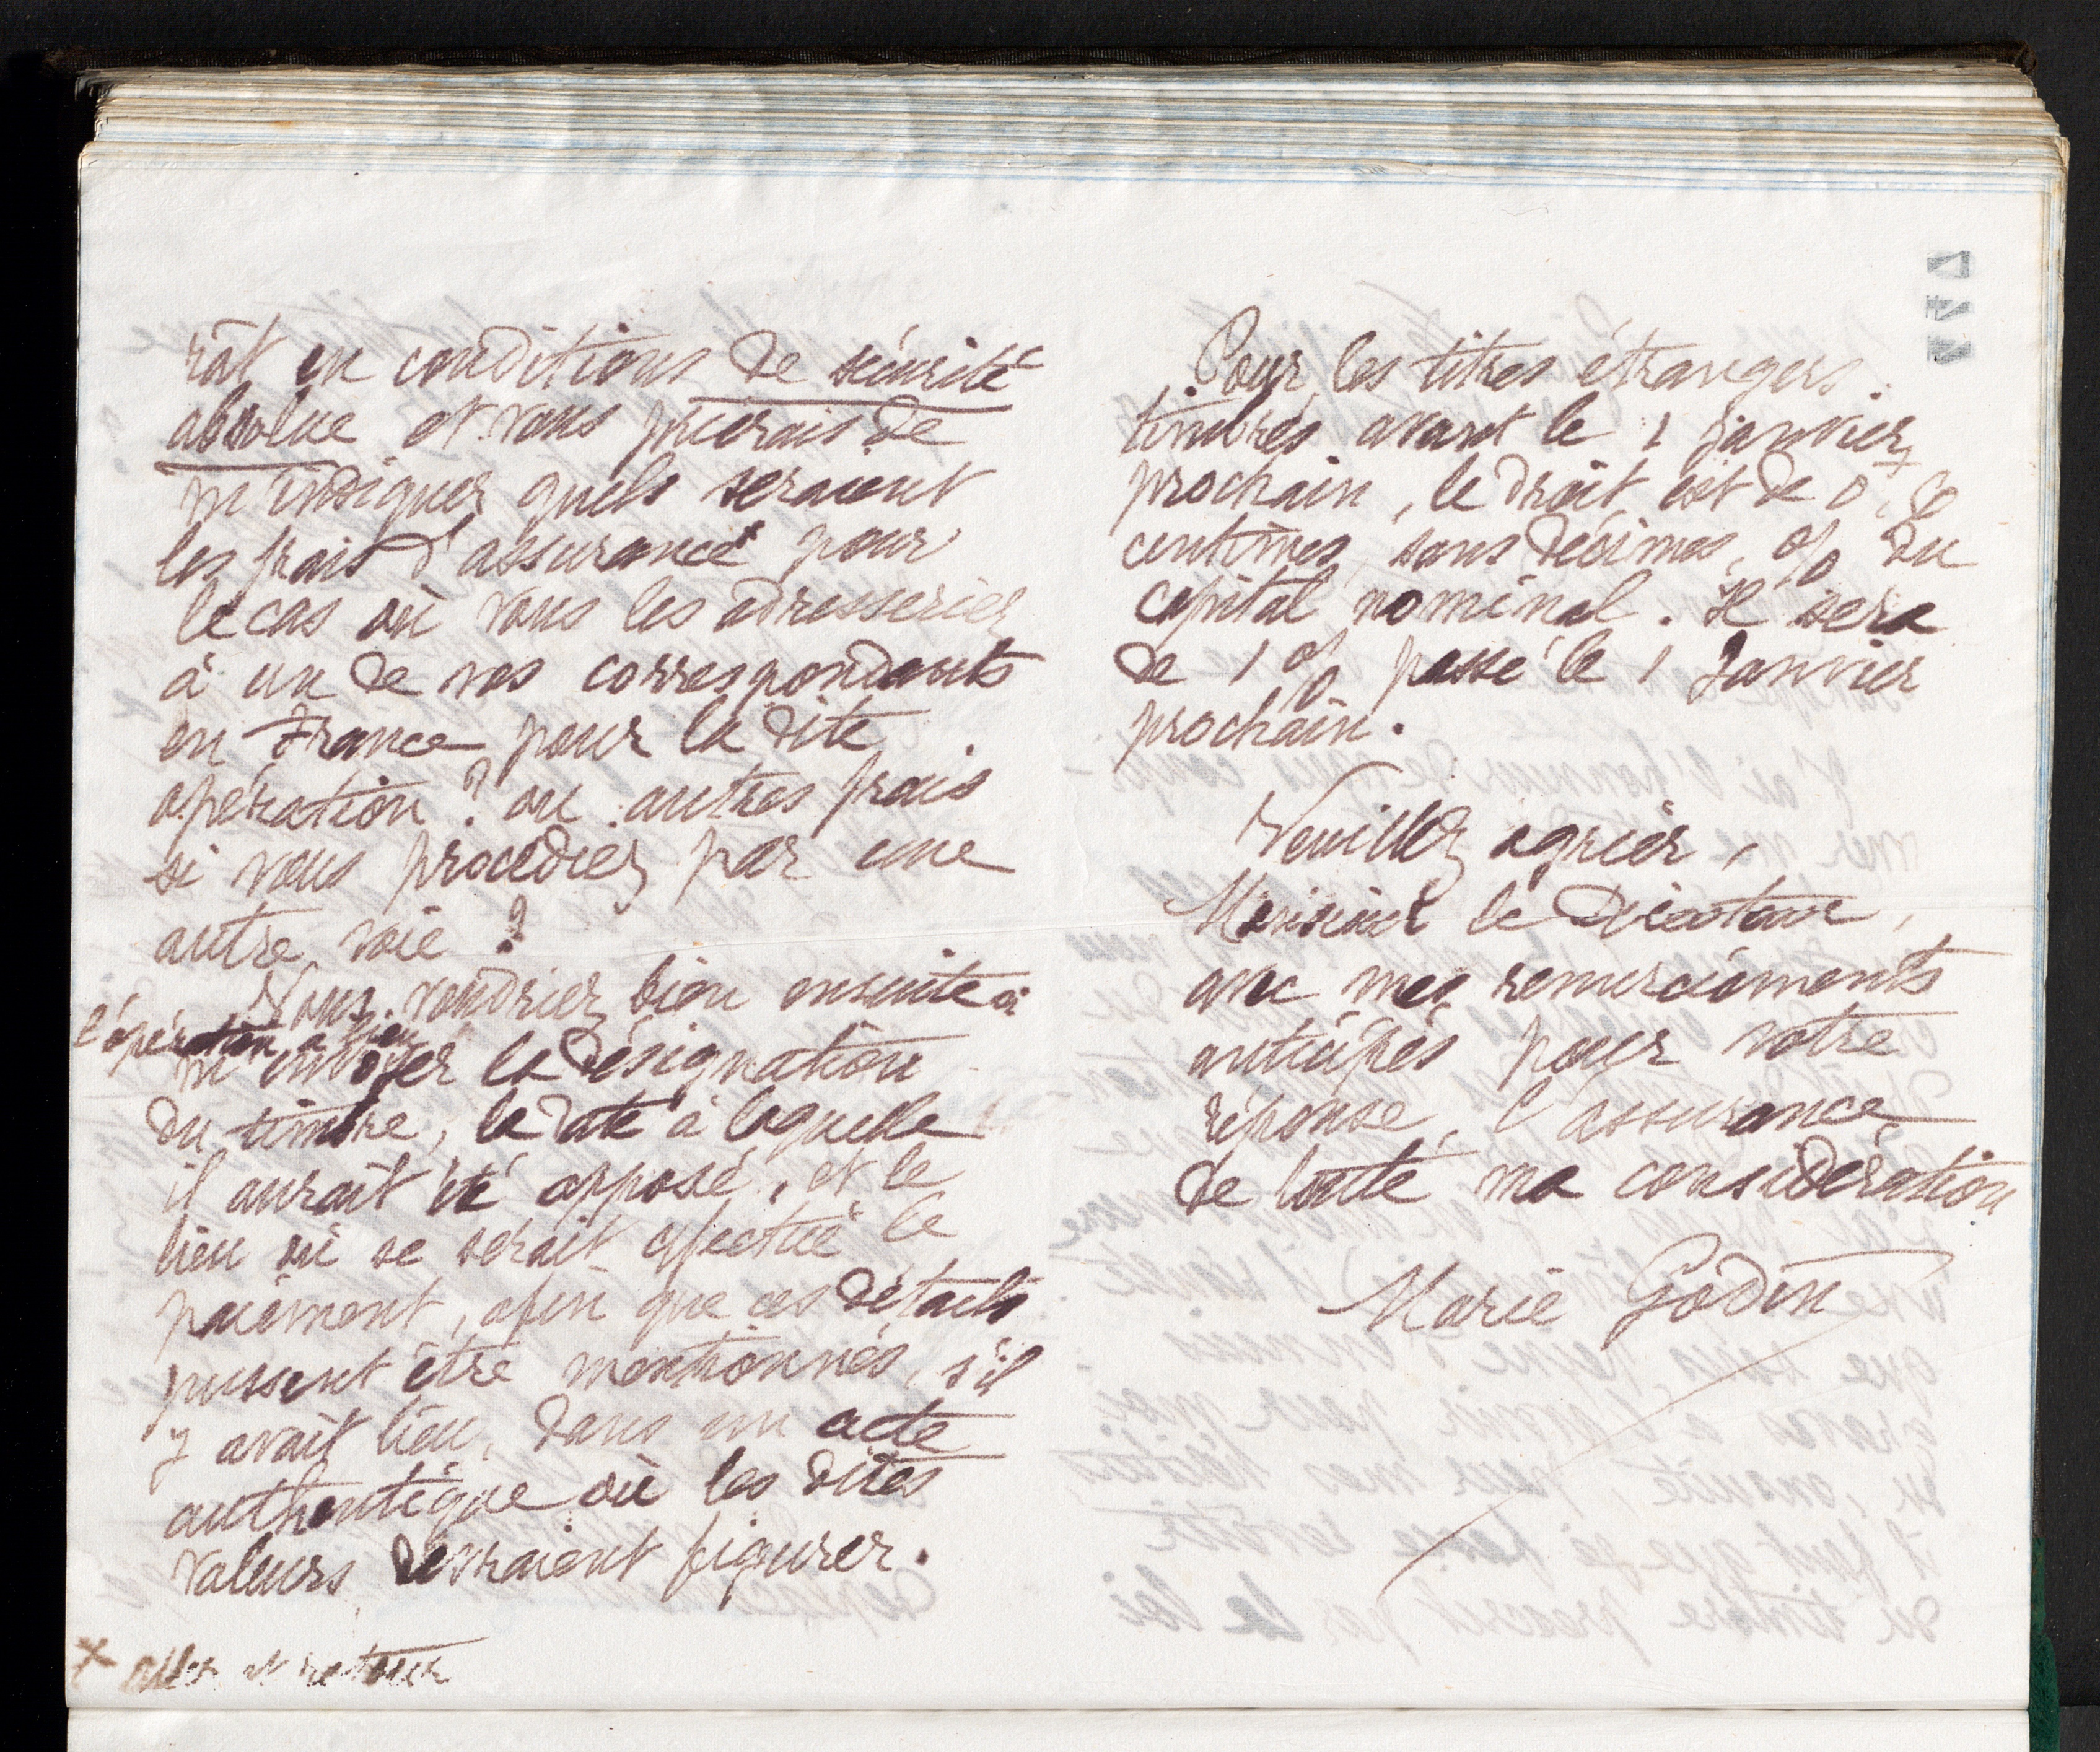 rât en conditions de sécurité
absolue et vous prierais de
m'indiquer quels seraient
les frais d'assurance x pour
le cas où vous les adresseriez
à un de vos correspondants
en France pour la dite
opération ? ou autres frais
si vous procédiez par une
autre voie ?
Vous voudriez bien ensuite si
l'opération a lieu
m'envoyer la désignation
du timbre, la date à laquelle
il aurait été apposé, et le
lieu où se serait effectué le
paiement, afin que ces détails
pussent être mentionnés, s'il
y avait lieu, dans un acte
authentique où les dites
valeurs devraient figurer.
x aller et retour
Pour les titres étrangers
timbrés avant le 1 janvier
prochain, le droit est de 0,
centimes, sans décimes, % du
capital nominal. Il sera
de 1 % passé le 1 Janvier
prochain.
Veuillez agréer,
Monsieur le Directeur,
avec mes remerciements
anticipés pour votre
réponse, l'assurance
de toute ma considération
Marie Godin